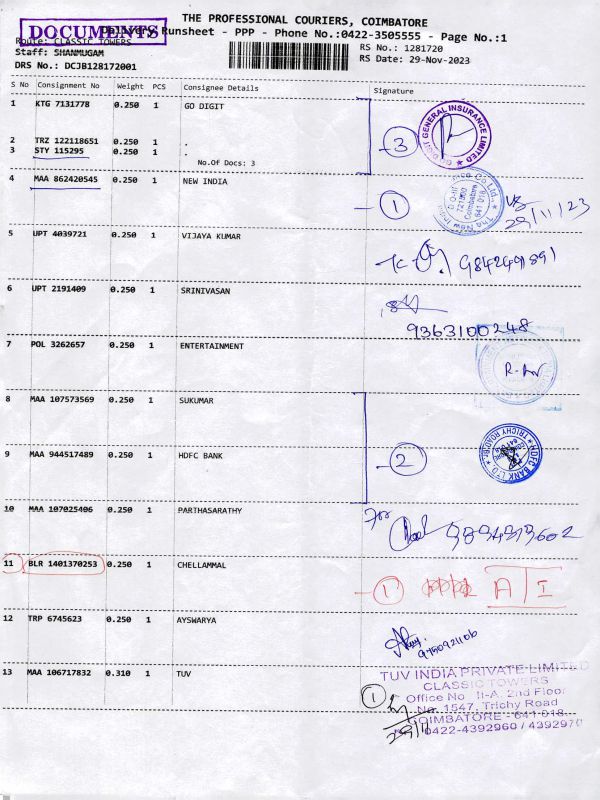 THE PROFESSIONAL COURIERS, COIMBATORE
DOCUMENTS
Delivery Runsheet - PPP - Phone No.:0422-3505555 - Page No.:1
Route: CLASSIC TOWERS
Staff: SHANMUGAM
DRS No.: DCJB128172001
RS No.: 1281720
RS Date: 29-Nov-2023
S No Consignment No Weight PCS Consignee Details Signature
1 KTG 7131778 0.250 1 GO DIGIT
2 TRZ 122118651 0.250 1 .
3 STY 115295 0.250 1 .
No.Of Docs: 3
3
DIGIT GENERAL INSURANCE LIMITED
4 MAA 862420545 0.250 1 NEW INDIA
1
29/11/23
5 UPT 4039721 0.250 1 VIJAYA KUMAR
9842491891
6 UPT 2191409 0.250 1 SRINIVASAN
9363100248
7 POL 3262657 0.250 1 ENTERTAINMENT
8 MAA 107573569 0.250 1 SUKUMAR
9 MAA 944517489 0.250 1 HDFC BANK
2
HDFC BANK LTD.
TRICHY ROAD Br.
10 MAA 107025406 0.250 1 PARTHASARATHY
For
11 BLR 1401370253 0.250 1 CHELLAMMAL
1 A I
12 TRP 6745623 0.250 1 AYSWARYA
13 MAA 106717832 0.310 1 TUV
1
TUV INDIA PRIVATE LIMITED
CLASSIC TOWERS
Office No II-A, 2nd Floor
No. 1547, Trichy Road
COIMBATORE - 641 018.
0422-4392960 / 4392970
29/11